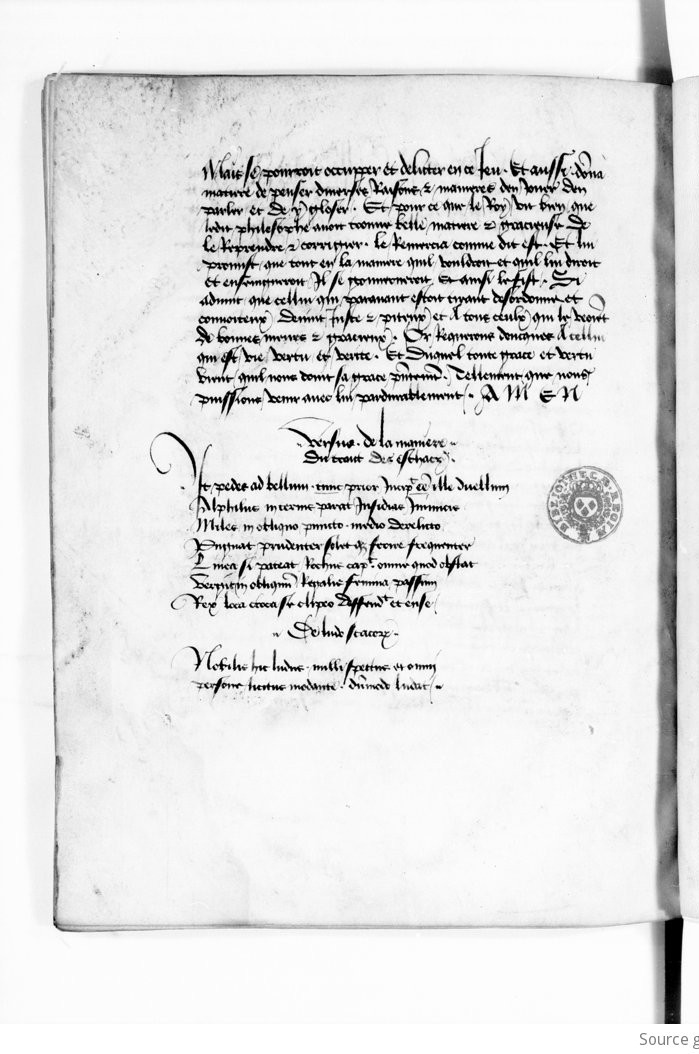 Mais se pourroit occupper et deliter en ce Jeu. Et aussi. dõna
matiere de penser diuerses Raisons. & manieres den Jouer den
parler et de y gloser. Et pour ce que le Roy vit bien que
ledit philosophe auoit trouue belle matiere & gracieuse de
le Reprendre & corrigier. le Remercia comme dit est. Et lui
promist que tout en la maniere quil vouldroit et quil lui diroit
et enseigneroit Il se gouuerneroit. Et ainsi le fist. Si
aduint que cellui qui parauant estoit tirant desordonne et
conuoiteux Deuint Juste & piteux et A tous ceulx qui le veoiẽt
de bonnes meurs & gracieux. Or Requerons doncques A cellui
qui est vie vertu et verite. Et Duquel toute grace et vertu
vient quil nous doint sa grace Tellement que nous
puissions venir auec lui pardurablement. A M E N
versus. de la maniere
Du trait des eschacz.
It pedes ad bellum. tunc prior Incip. ille duellum
Alphilus incerme parat Insidias Inimicis
Miles in obliquo puncto. medio derelicto
Pugnat prudenter solet frequenter
Linea si pateat Rochus cap. omne quod obstat
obliquum Regalis femina passum
Rex loca circa se clipeo deffend. et ense
De ludo scacorꝝ
Nobilis hic ludus. nulli et omni
persone licitus . dũmodo ludat
BIBLIOTHECAE REGIAE
Source g